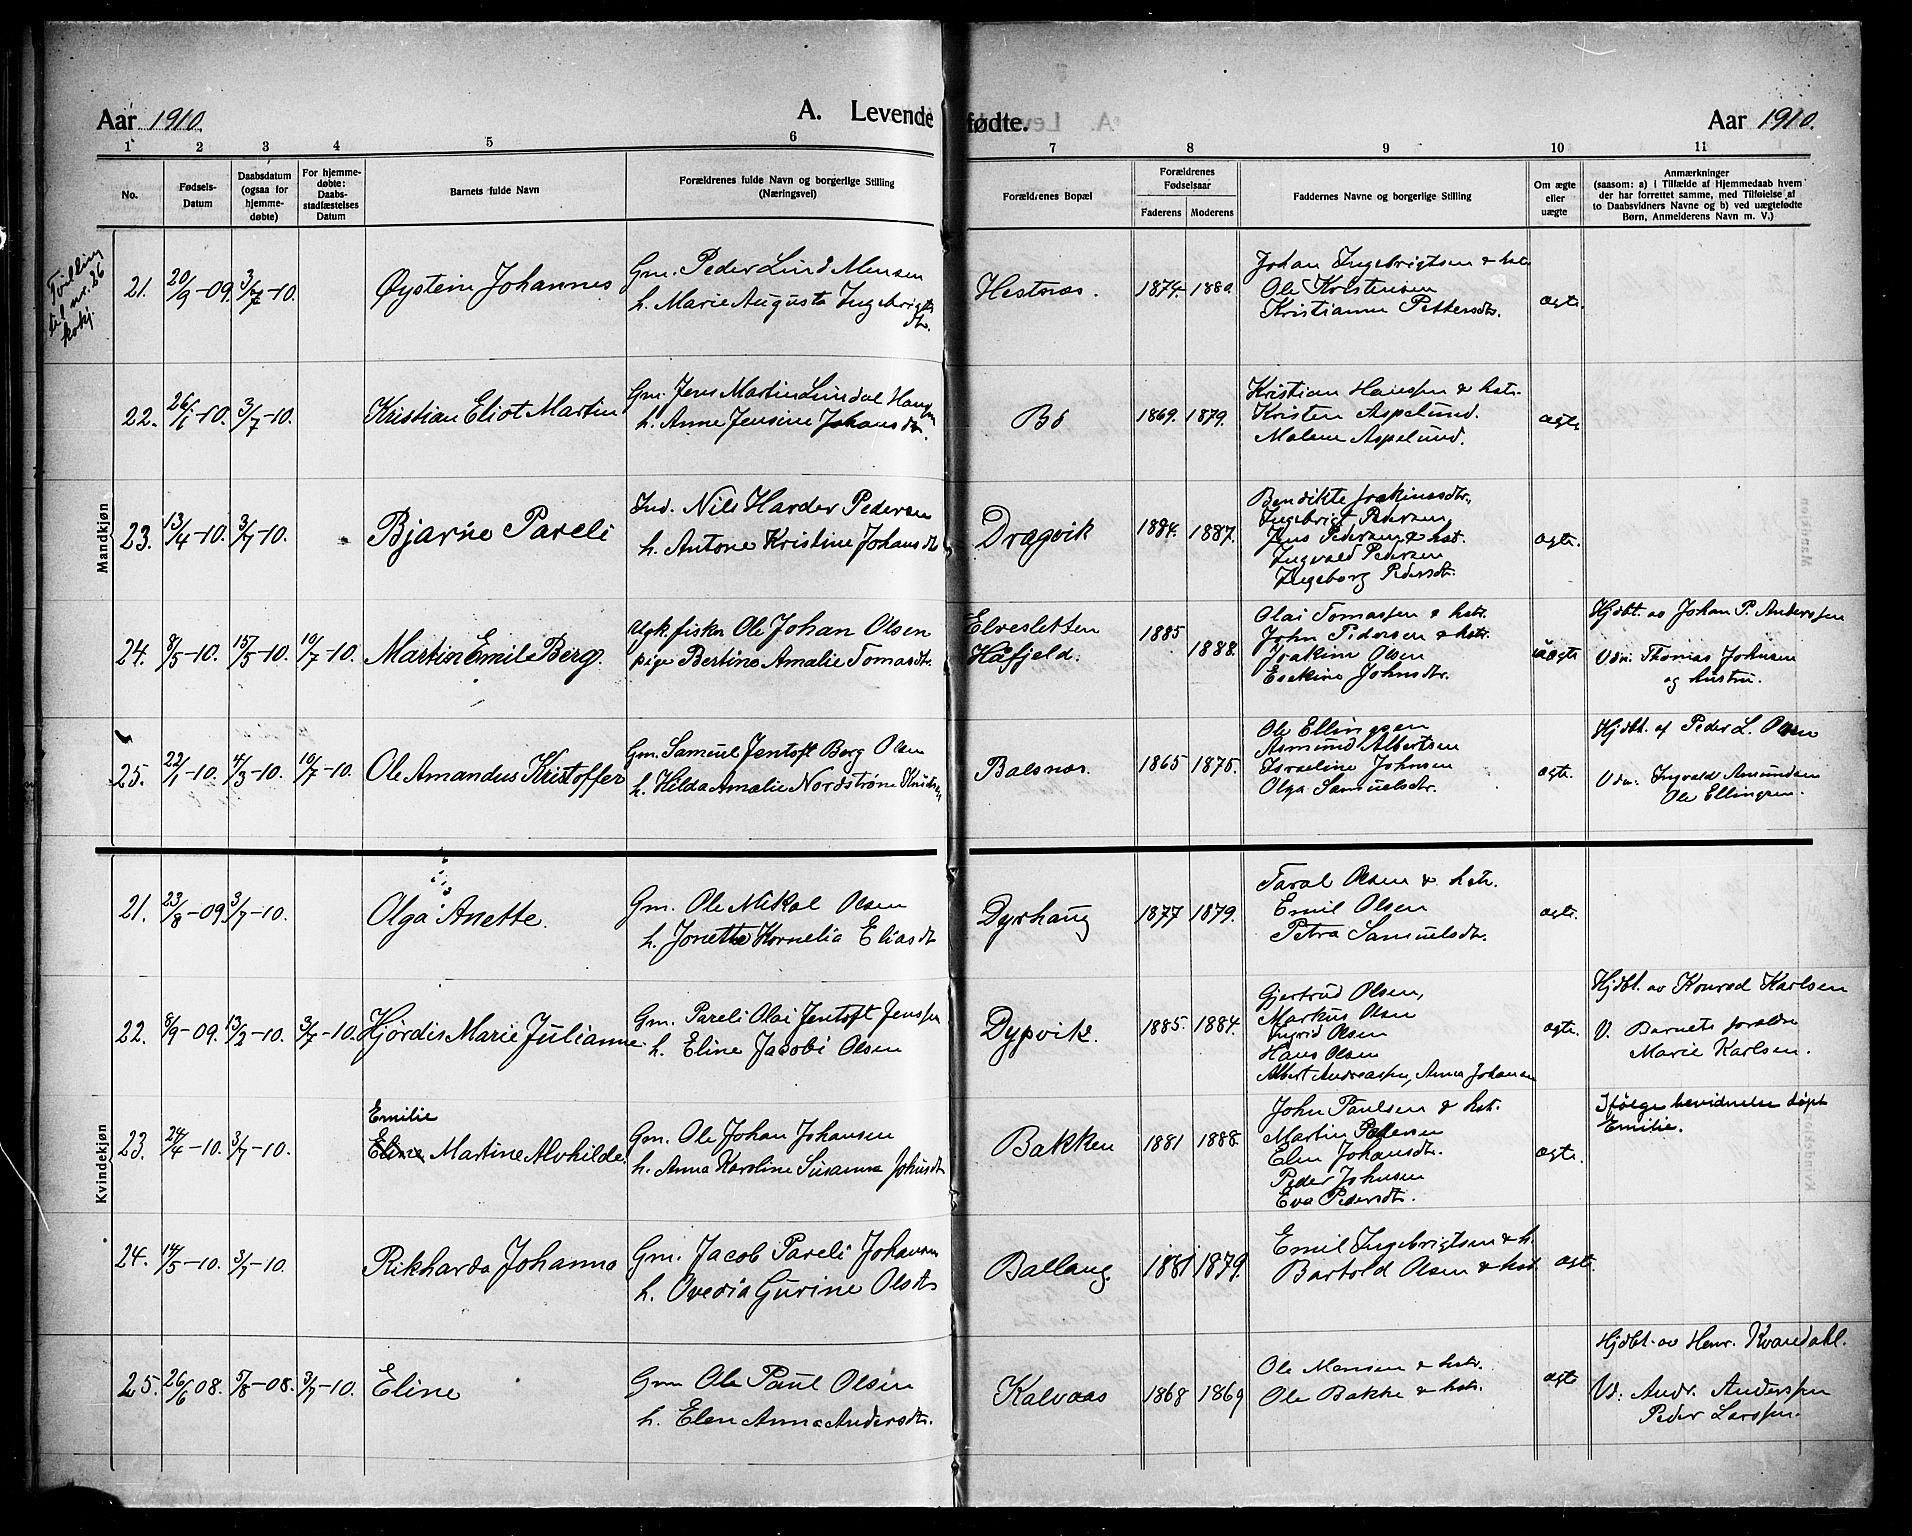 Aar 1910.
A. Levende
fødte.
Aar 1910.
1 2 3 4 5 6 7 8 9 10 11
No.
Fødsels-
Datum
Daabsdatum
(ogsaa for
hjemme-
døbte)
For hjemme-
døbte:
Daabs-
stadfæstelses
Datum
Barnets fulde Navn
Forældrenes fulde Navn og borgerlige Stilling
(Næringsvei)
Forældrenes Bopæl
Forældrenes
Fødselsaar
Faderens
Moderens
Faddernes Navne og borgerlige Stilling
Om ægte
eller
uægte
Anmærkninger
(saasom: a) i Tilfælde af Hjemmedaab hvem
der har forrettet samme, med Tilføielse af
to Daabsvidners Navne og b) ved uægtefødte
Børn, Anmelderens Navn m. V.)
Mandkjøn
Tvilling
til nr. 26
kvkj.
21. 20/9-09. 3/7-10. Øystein Johannes
Gm. Peder Lind Monsen
h. Marie Augusta Ingebrigts
dtr.
Hestnes. 1874. 1880.
Johan Ingebrigtsen & hst.
Ole Kristensen
Kristianne Pettersdtr.
ægte.
22. 26/1-10. 3/7-10. Kristian Eliot Martin
Gm. Jens Martin Lindal Hansen
h. Anne Jensine Johansdtr.
Bø 1869. 1879.
Kristian Hansen & hstr.
Kristen Aspelund.
Malene Aspelund.
ægte.
23. 13/4-10. 3/7-10. Bjarne Pareli
Ind. Nils Harder Pedersen
h. Antone Kristine Johansdtr
Dragvik 1884. 1887.
Bendikte Joakimsdtr.,
Ingebrigt Pedersen
Jens Pedersen & hst.
Ingvald Pedersen
Ingeborg Pedersdtr.
ægte.
24. 8/5-10. 15/5-10. 10/7-10. Martin Emil Berg.
Ugk. fiskr Ole Johan Olsen
pige Bertine Amalie Tomasdtr.
Elvesletten
Håfjeld.
1885
1888.
Olai Tomassen & hstr.
John Pedersen & hstr.
Joakim Olsen
Eskine Johnsdtr.
uægte
Hjdbt. av Johan P. Anderssen
Vdn. Thomas Johnsen
og hustru.
25. 22/1-10. 4/3-10. 10/7-10. Ole Amandus Kristoffer
Gm. Samuel Jentoft Berg Olsen
h. Hilda Amalie Nordstrøm Knudsen
Balsnes. 1865 1875.
Ole Ellingsen
Asmund Albertsen
Israeline Johnsen
Olga Samuelsdtr.
ægte.
Hjdbt. af Peder L. Olsen
Vdn. Ingvald Amundsen
Ole Ellingsen.
Kvindekjøn
21. 23/8-09. 3/7-10. Olga Anette.
Gm. Ole Mikal Olsen
h. Jonette Kornelia Eliasdtr
Dyrhaug 1877 1879.
Taral Olsen & hstr.
Emil Olsen
Petra Samuelsdtr.
ægte.
22. 8/9-09. 13/2-10. 3/7-10. Hjørdis Marie Julianne
Gm. Pareli Olai Jentoft Jenssen
h. Eline Jacobi Olsen
Dypvik. 1885. 1884.
Gjertrud Olsen,
Markus Olsen
Ingrid Olsen
Hans Olsen
Albert Andreassen, Anna Johansen
ægte.
Hjdbt. av Konrad Karlsen
V. Barnets forældre
Marie Karlsen.
Emilie
23. 24/4-10. 3/7-10. Eline Martine Alvhilde.
Gm. Ole Johan Johansen
h. Anna Karoline Susanna Johnsdtr
Bakken 1881 1888.
John Paulsen & hst.
Martin Pedersen
Elen Johansdtr.
Peder Johnsen
Eva Pedersdtr.
ægte.
Ifølge bevidnelse døpt
Emilie.
24. 14/5-10. 3/7-10. Rikharda Johanna
Gm. Jacob Pareli Johansen
h. Ovedia Gurine Olsdtr
Ballang. 1881 1879.
Emil Ingebrigtsen & h.
Bartold Olsen & hst.
ægte.
25. 26/6 08. 5/8-08. 3/7-10. Eline
Gm Ole Paul Olsen
h. Elen Anna Andersdtr.
Kalvaas 1868 1869
Ole Monsen & hstr.
Ole Bakke & hstr.
ægte
Hjdbt. av Henr. Kvandahl.
Vd: Andr. Anderssen
Peder Larssen.